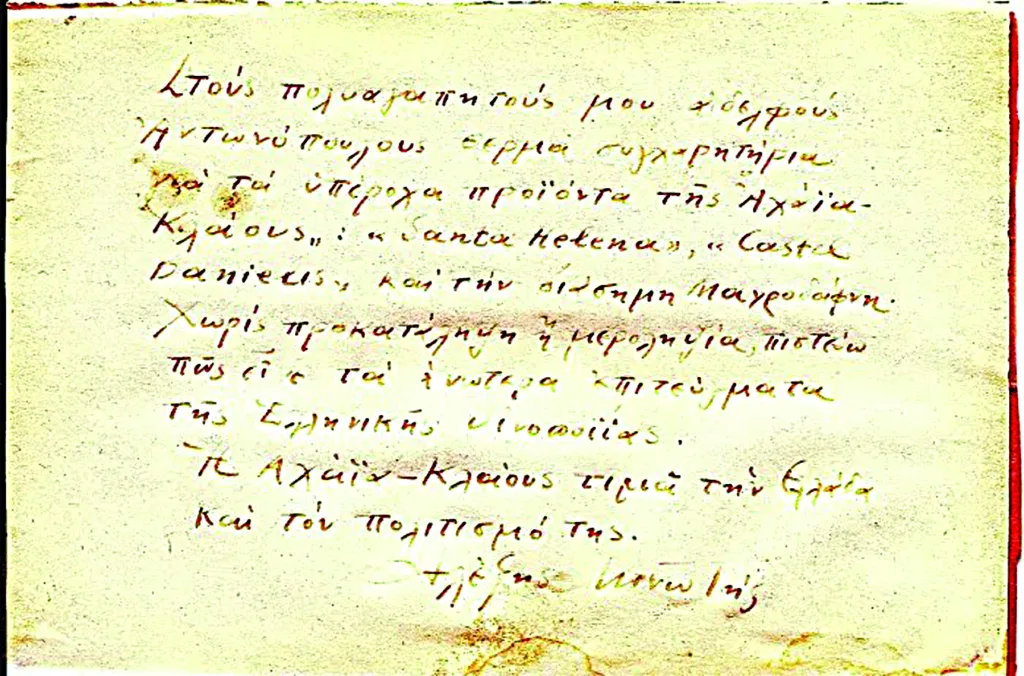 Στους πολυαγαπητούς μου ἀδελφούς
Ἀντωνόπουλους θερμά συγχαρητήρια
γιά τά ὑπέροχα προϊόντα τῆς Ἀχάϊα-
Κλάους„: «Santa Helena», «Castel
Danielis„ καί τήν διάσημη Μαυροδάφνη.
Χωρίς προκατάληψη ἤ μεροληψία, πιστεύω
πῶς τά ἀνώτερα ἐπιτεύγματα
τῆς Ἑλληνικῆς οἰνοποιΐας.
Ἡ Ἀχάϊα-Κλάους τιμᾶ τήν Ἑλλάδα
καί τόν πολιτισμό της.